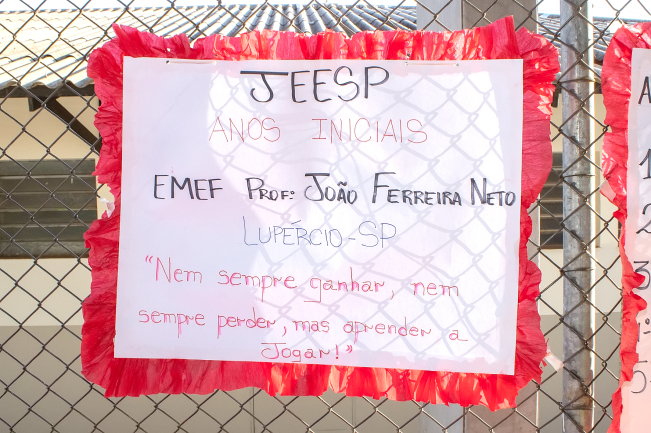 JEESP
ANOS INICIAIS
EMEF PROFº JOÃO FERREIRA NETO
LUPÉRCIO-SP
"Nem sempre ganhar, nem
sempre perder, mas aprender a
Jogar!"
A
1
2
3
5